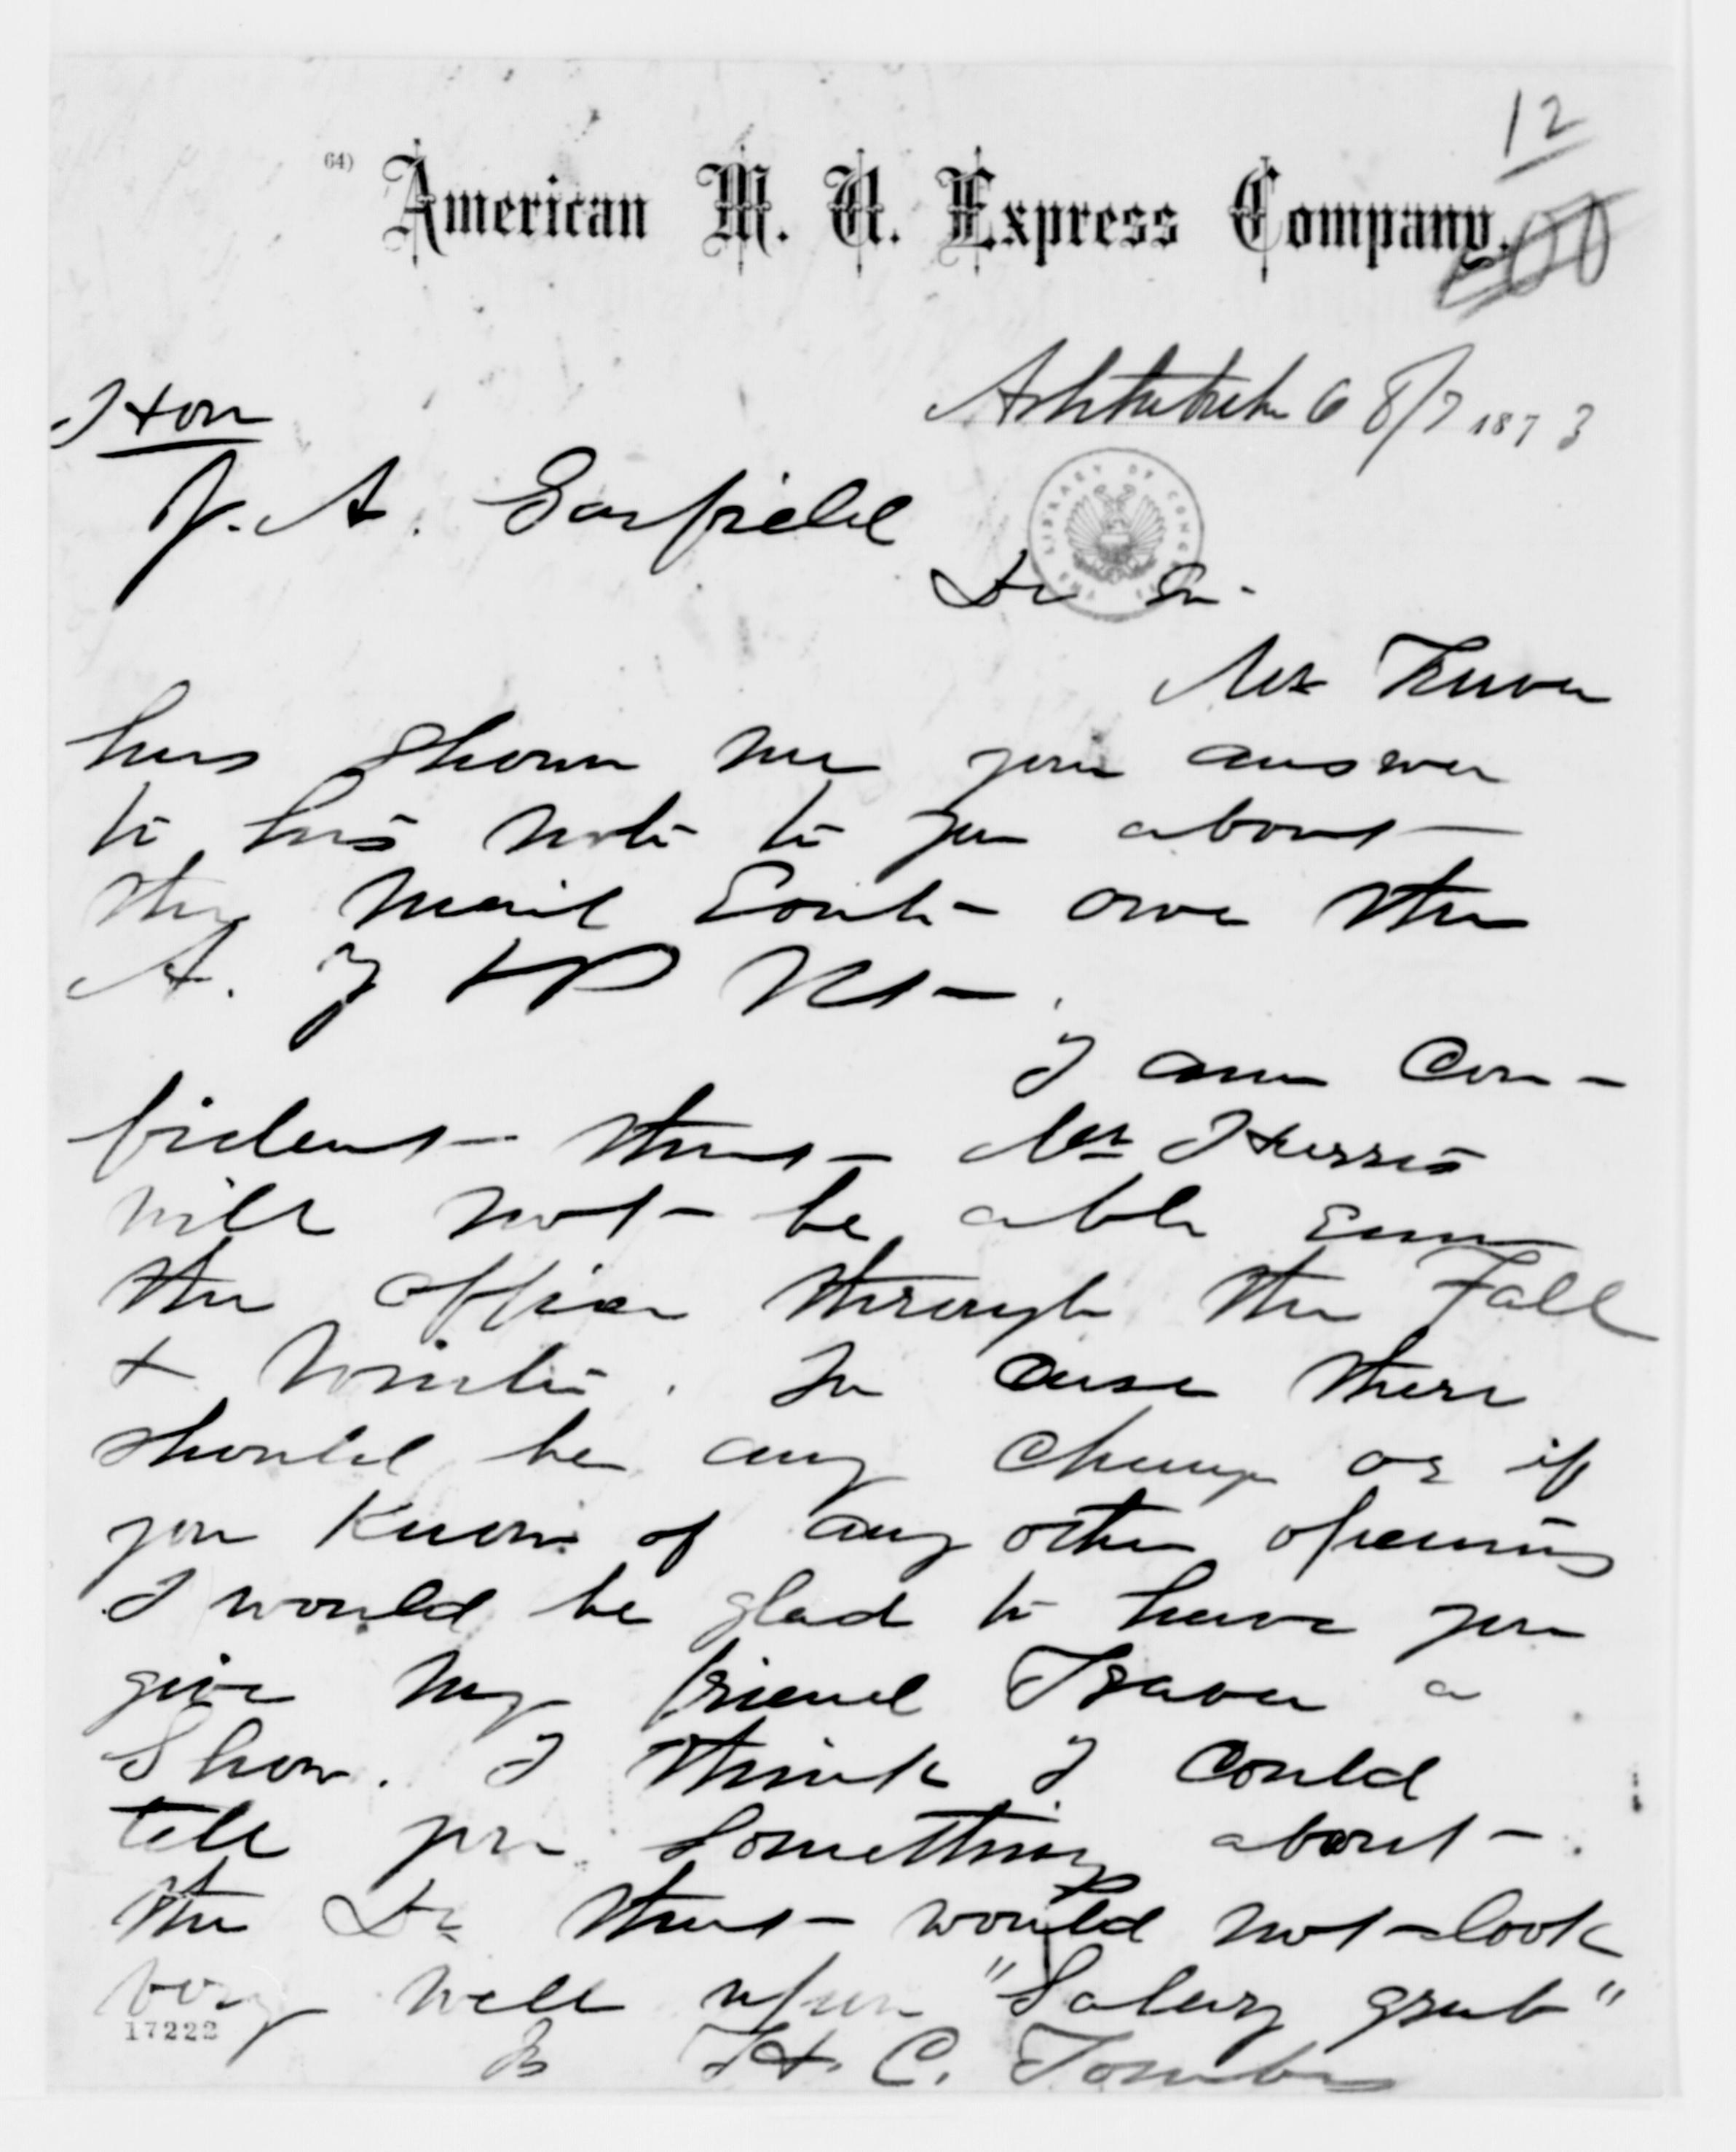 12
64)
American M. U. Express Company.
Ashtabula O 8/7 1873
Hon
J. A. Garfield
Dr Sir
Mr Traver
has shown me your answer
to his note to you about
the mail Route over the
A. Y & P Rt
I am Con-
fident that Mr Harris
will not be able
the office through the Fall
& Winter. In case there
should be any change or if
you know of any other opening
I would be glad to have you
give my friend Traver a
Show. I think I could
tell you something about
the Dr that would not look
very well upon "Salary grab"
17222
H. C. Tombes